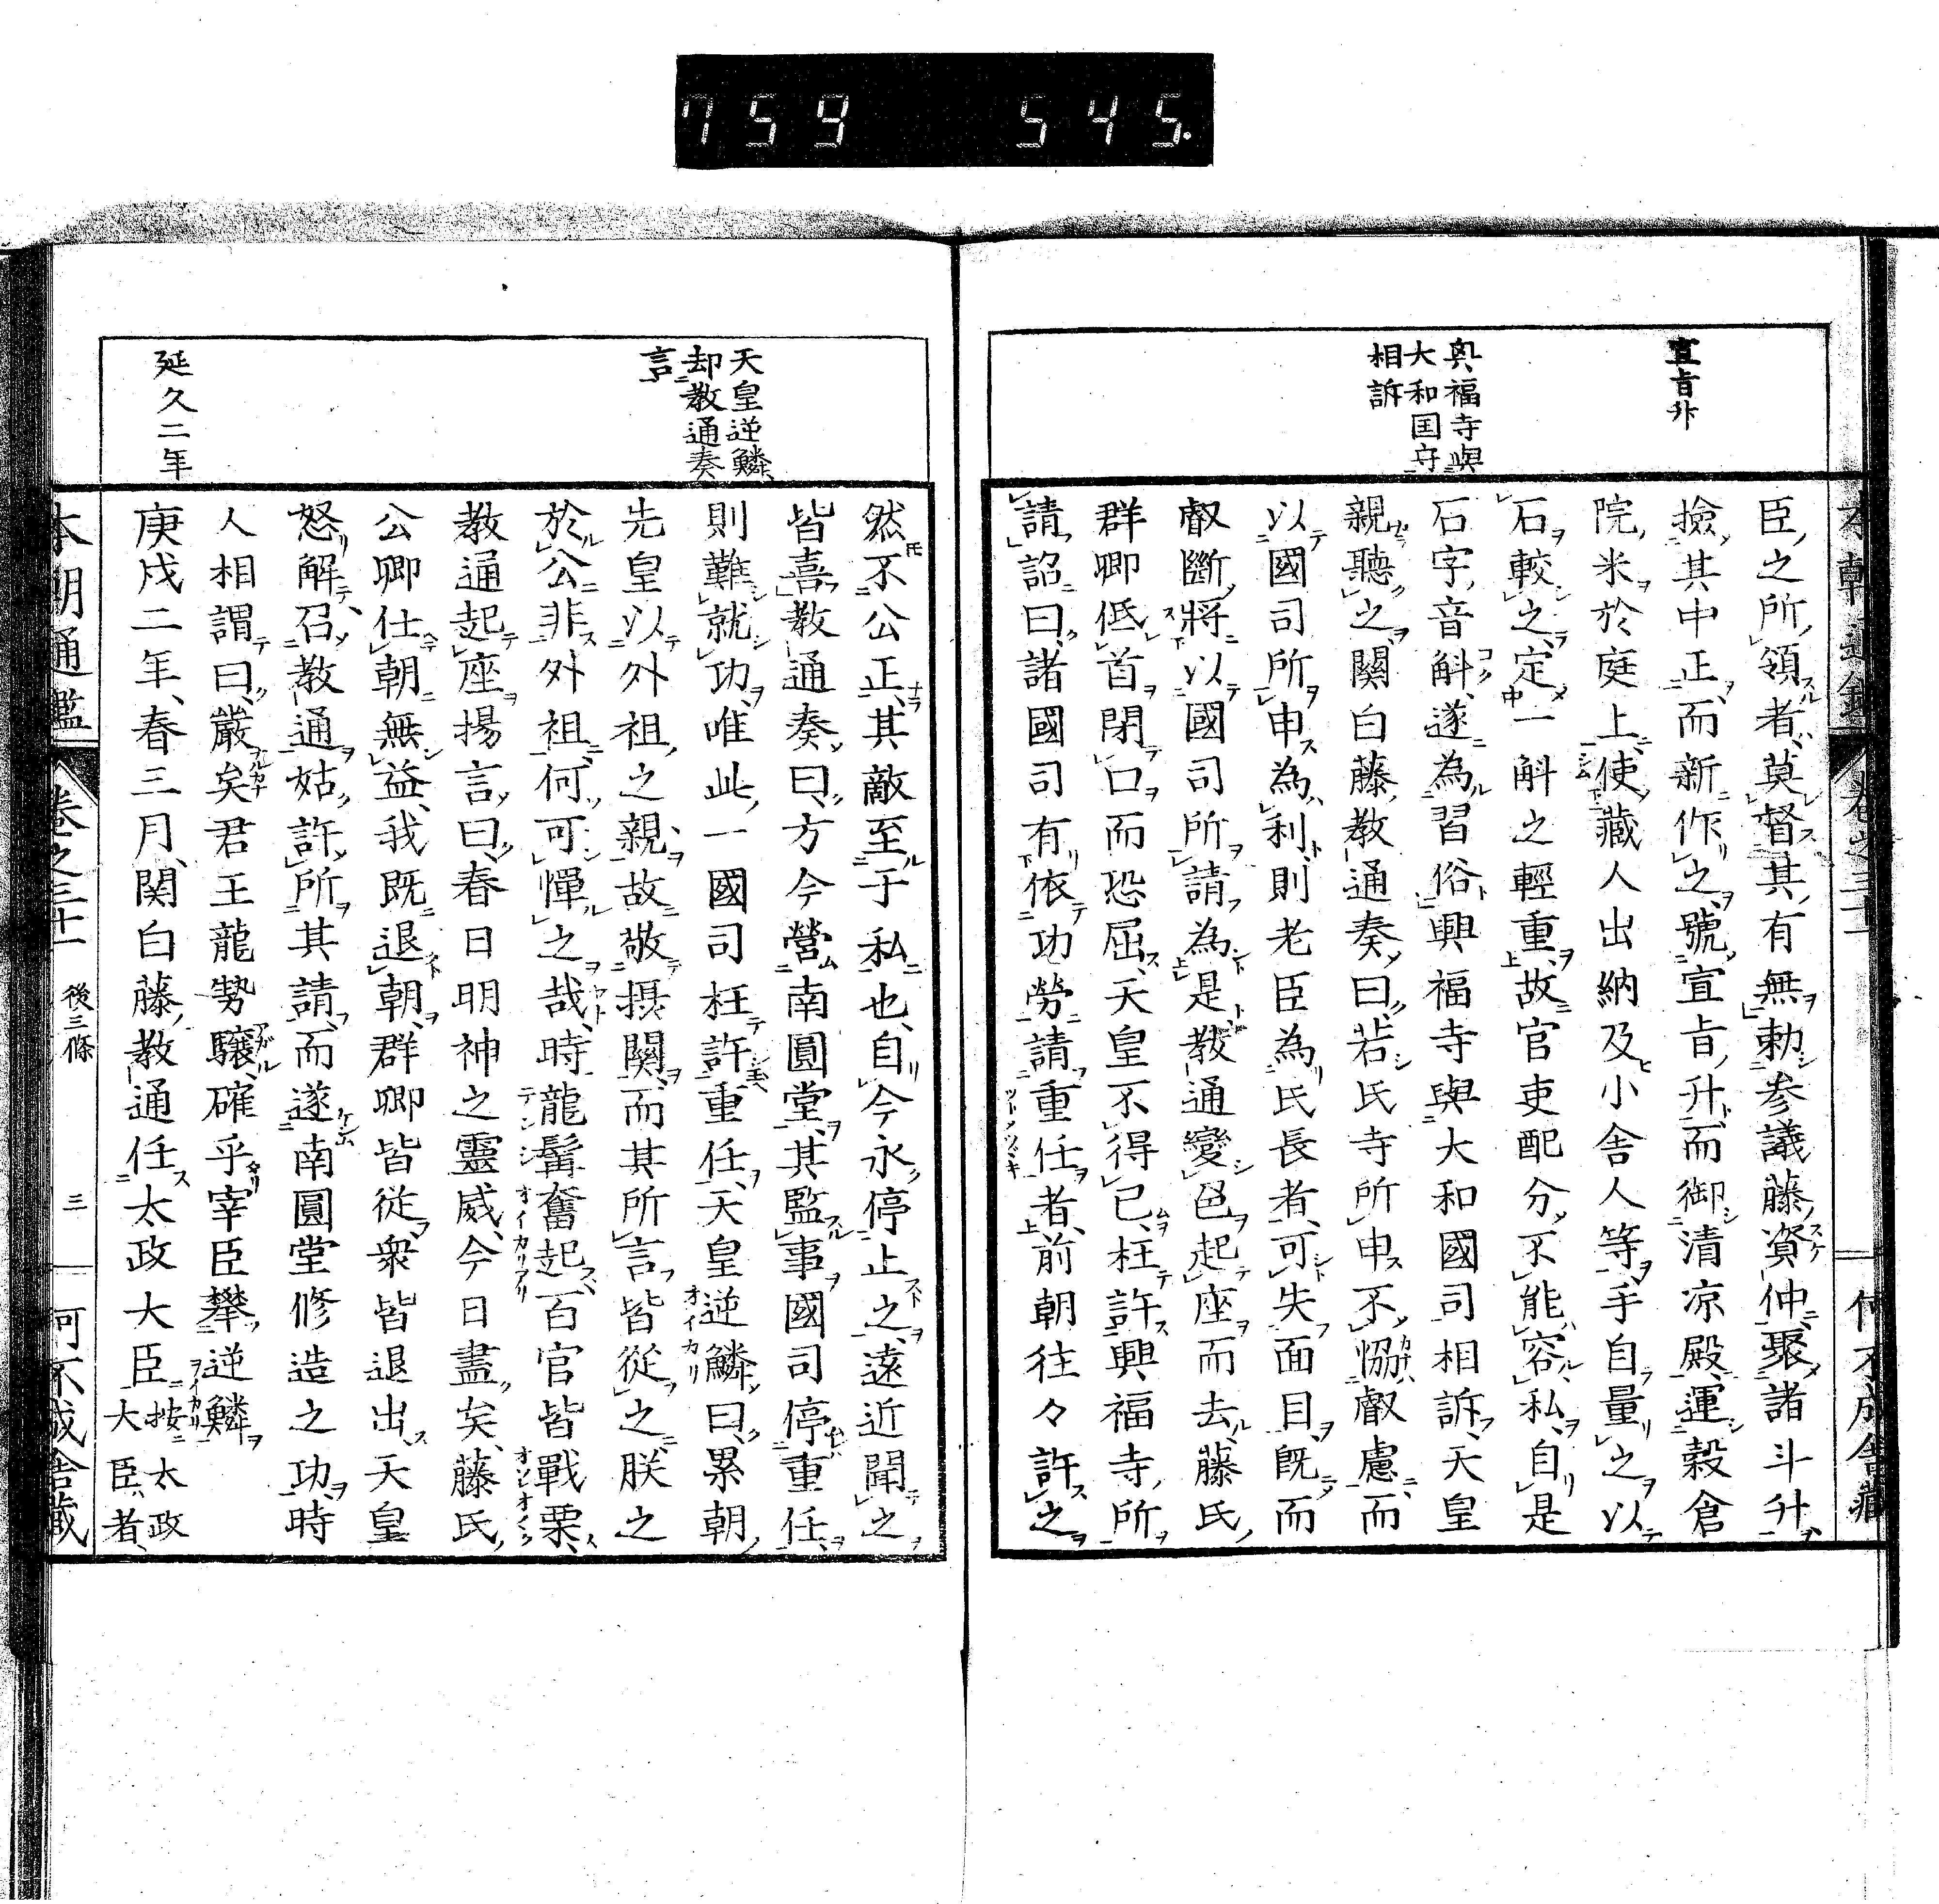 759 545.
宣旨升
興福寺與
大和国守
相訴
臣之所領者莫督其有無勅参議藤資仲聚諸斗升
撿其中正而新作之號宣旨升而御清凉殿運穀倉
院米於庭上使藏人出納及小舎人等手自量之以
石較之定一斛之輕重故官吏配分不能容私自是
石字音斛遂為習俗興福寺與大和國司相訴天皇
親聽之關白藤教通奏曰若氏寺所申不恊叡慮而
以國司所申為利則老臣為氏長者可失面目既而
叡斷將以國司所請為是教通變色起座而去藤氏
群卿低首閉口而恐屈天皇不得已枉許興福寺所
請詔曰諸國司有依功勞請重任者前朝往々許之
天皇逆鱗
却教通奏
言
延久二年
然不公正其敵至于私也自今永停止之遠近聞之
皆喜教通奏曰方今營南圓堂其監事國司停重任
則難就功唯此一國司枉許重任天皇逆鱗曰累朝
先皇以外祖之親故敬摂關而其所言皆從之朕之
於公非外祖何可憚之哉時龍髯奮起百官皆戰栗
教通起座揚言曰春日明神之靈威今日盡矣藤氏
公卿仕朝無益我既退朝群卿皆從衆皆退出天皇
怒解召教通姑許所其請而遂南圓堂修造之功時
人相謂曰嚴矣君王龍勢驤確乎宰臣攀逆鱗
庚戌二年春三月関白藤教通任太政大臣按太政
大臣者
本朝通鑑 卷之三十一 後三條 三